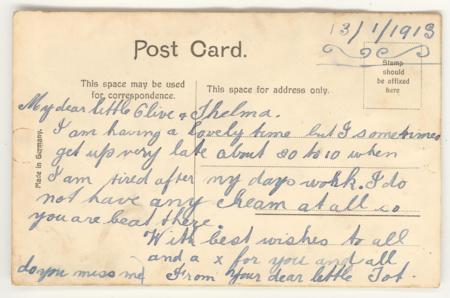 13/1/1913
Post Card.
Stamp
should
be affixed
here
This space may be used
for correspondence.
This space for address only.
Made in Germany.
My dear little Olive & Thelma.
I am having a lovely time but I sometimes
get up very late about 20 to 10 when
I am tired after my days work. I do
not have any cream at all so
you are beat there.
With best wishes to all
and a x for you and all
do you miss me From Your dear little Tot.